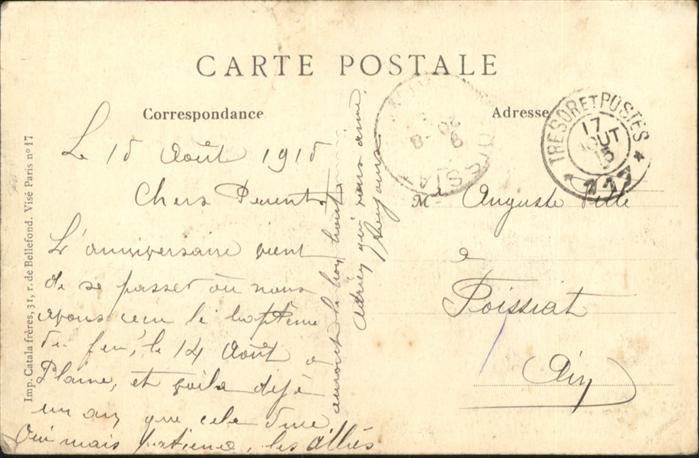 CARTE POSTALE
Correspondance
Adresse
Le 15 Août 1915
Chers Parents
L'anniversaire vient
de se passer où nous
avons reçu le baptême
du feu, le 14 Août à
Plaine, et voila déjà
un an que cela dure
Oui mais patience, les alliés
auront le bon bout
Adrien qui vous aime
toujours
M Auguste
à
Poissiat
Ain
TRESOR ET POSTES
17
AOUT
15
* 117 *
SSIAT
Imp. Catala frères, 31, r. de Bellefond. Visé Paris nº 17